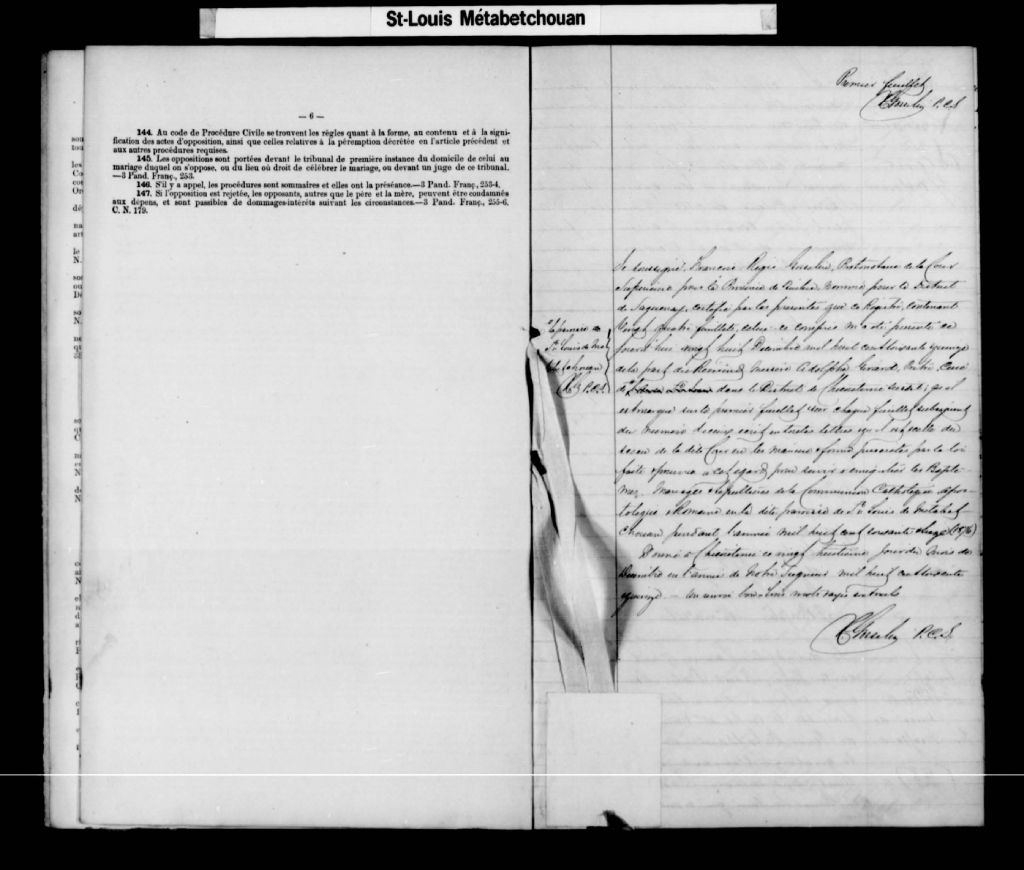 St-Louis Métabetchouan
— 6 —
144. Au code de Procédure Civile se trouvent les règles quant à la forme, au contenu et à la signi-
fication des actes d'opposition, ainsi que celles relatives à la péremption décrétée en l'article précédent et
aux autres procédures requises.
145. Les oppositions sont portées devant le tribunal de première instance du domicile de celui au
mariage duquel on s'oppose, ou du lieu où droit de célébrer le mariage, ou devant un juge de ce tribunal.
—3 Pand. Franç., 253.
146. S'il y a appel, les procédures sont sommaires et elles ont la présèance.—3 Pand. Franç., 253-4.
147. Si l'opposition est rejetée, les opposants, autres que le père et la mère, peuvent être condamnés
aux dépens, et sont passibles de dommages-intérêts suivant les circonstances.—3 Pand. Franç., 255-6.
C. N. 179.
Premier feuillet
P.C.S.
Je soussigné, François Régis Gosselin, Protonotaire de la Cour
Supérieure pour la Province de Québec, nommé pour le District
de Saguenay, certifie par les présentes que ce Registre, contenant
Vingt quatre feuillets, celui-ci compris m'a été présenté ce
jourd'hui vingt huit Décembre mil huit cent soixante quinze
de la part du Révérend Messire Adolphe Girard, Prêtre, Curé
de dans le District de Chicoutimi
est marqué sur le premier feuillet sur chaque feuillet subséquent
du numéro écrit en toutes lettres qu'il est scellé du
sceau de la dite Cour en la manière & forme prescrites par la loi
faite & pourvue à cet égard pour servir à enregistrer les Baptê-
mes, Mariages & Sépultures de la Communion Catholique Apos-
tolique & Romaine en la dite paroisse de St Louis de Métabet-
chouan pendant l'année mil huit cent soixante & seize (1876)
Donné à Chicoutimi ce vingt huitième jour du mois de
Décembre en l'année de Notre Seigneur mil huit cent soixante
quinze — un renvoi bon. trois mots rayés
P.C.S.
la paroisse de
St Louis de Méta
betchouan
P.C.S.